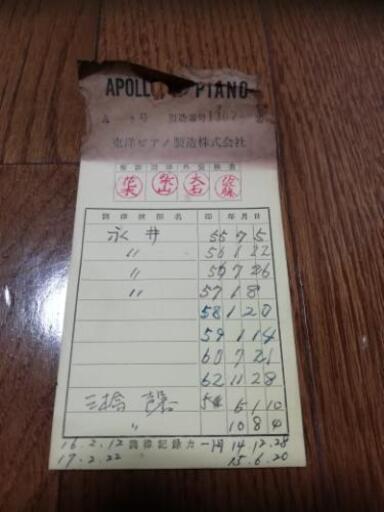 APOLLO PIANO
号 製造番号 1367
東洋ピアノ製造株式会社
大石 佐藤
調律技師名 印 年月日
永井 55 7 5
〃 56 1 22
〃 56 7 26
〃 57 1 8
58 1 20
59 1 14
60 7 21
62 11 28
三橋 6 1 10
〃 10 8 4
16.2.12 調律記録カード 14 12.28
17.2.22 15.6.20